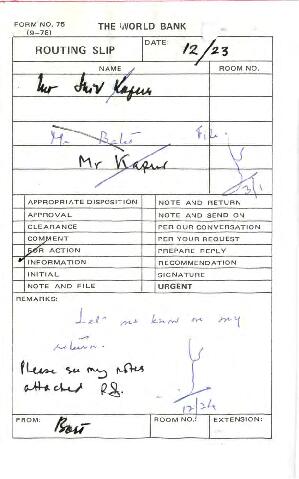 FORM NO. 75 THE WORLD BANK
(9-78)
ROUTING SLIP DATE: 12/23
NAME ROOM NO.
Mr Shiv Kapur
Mr. Bart File.
Mr Kapur
3/1
APPROPRIATE DISPOSITION NOTE AND RETURN
APPROVAL NOTE AND SEND ON
CLEARANCE PER OUR CONVERSATION
COMMENT PER YOUR REQUEST
FOR ACTION PREPARE REPLY
INFORMATION RECOMMENDATION
INITIAL SIGNATURE
NOTE AND FILE URGENT
REMARKS:
Let me know on my
return.
Please see my notes
attached
FROM: ROOM NO.: EXTENSION: